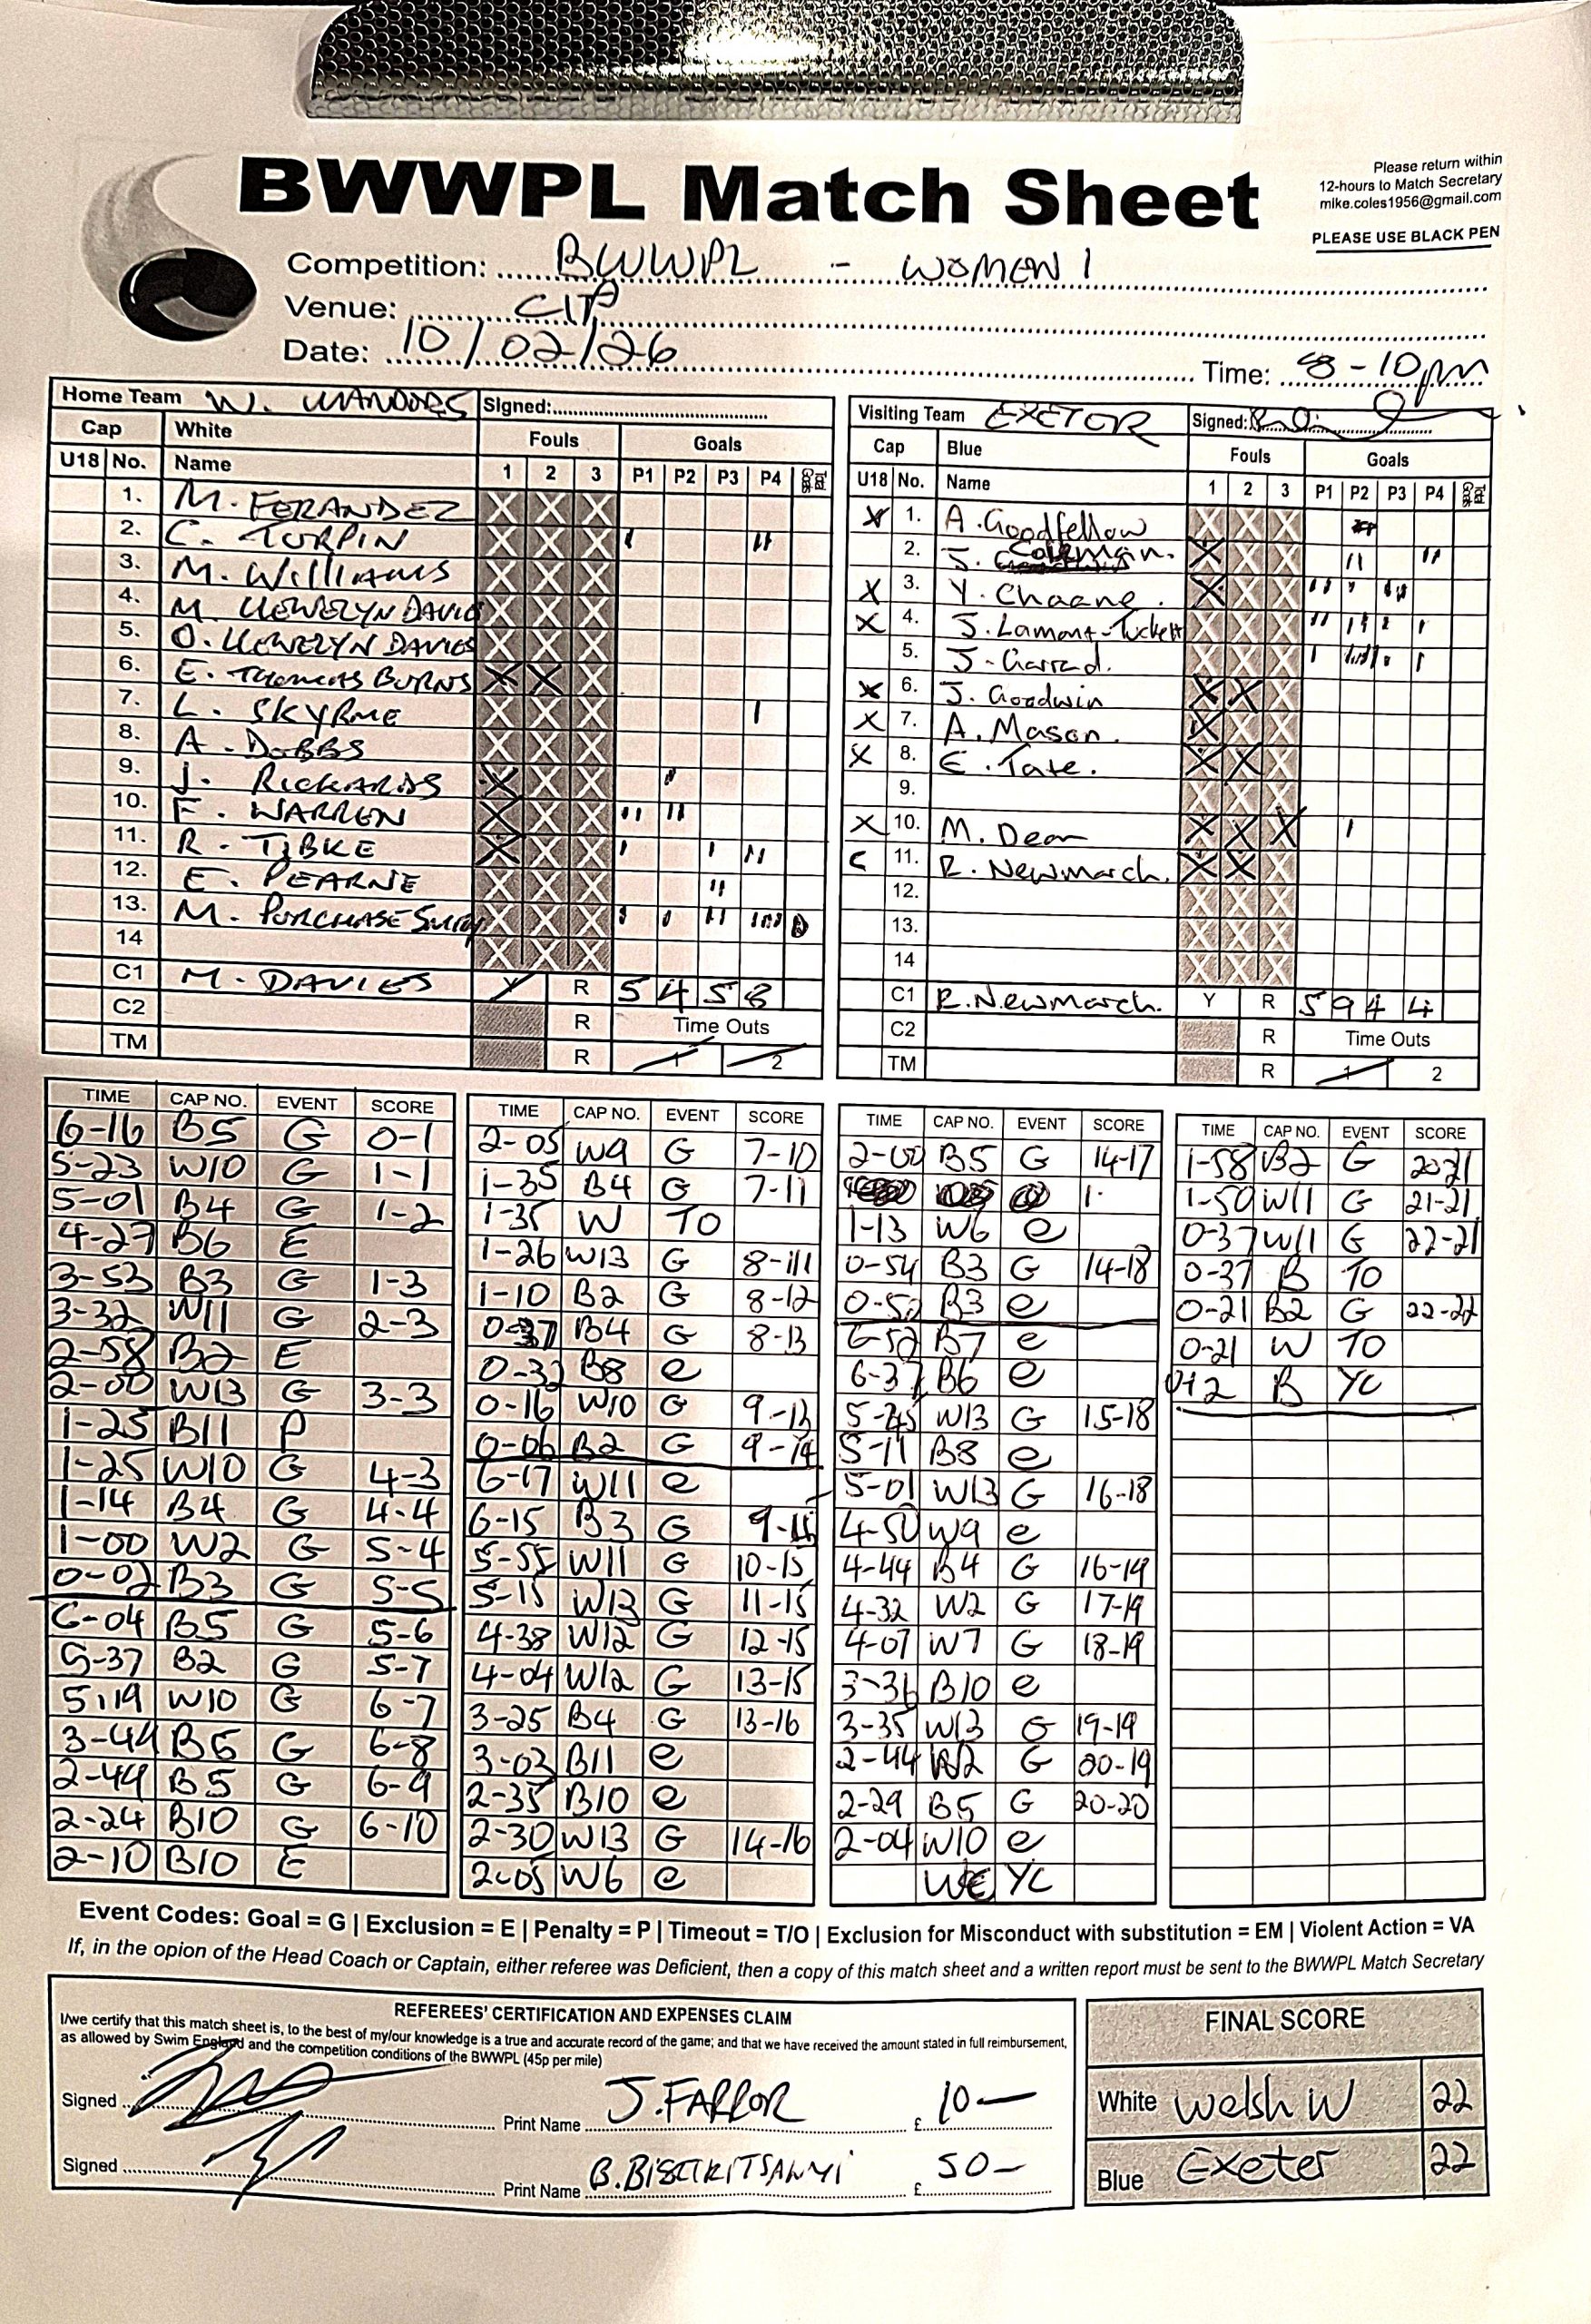 BWWPL Match Sheet
Please return within
12-hours to Match Secretary
mike.coles1956@gmail.com
PLEASE USE BLACK PEN
Competition: BWWPL - WOMEN 1
Venue: CITA
Date: 10/02/26
Time: 8-10pm
Home Team W. WANDORS Signed:
Cap White Fouls Goals
U18 No. Name 1 2 3 P1 P2 P3 P4 Total Goals
1. M. FERANDEZ
2. C. TURPIN
3. M. WILLIAMS
4. M. LLEWELYN DAVIES
5. O. LLEWELYN DAVIES
6. E. THOMAS BURNS
7. L. SKYRME
8. A. DOBBS
9. J. RICKARDS
10. F. WARREN
11. R. TIBKE
12. E. PEARNE
13. M. PURCHASE SMITH
14
C1 M. DAVIES Y R 5 4 5 8
C2 R Time Outs
TM R 1 2
Visiting Team EXETOR Signed:
Cap Blue Fouls Goals
U18 No. Name 1 2 3 P1 P2 P3 P4 Total Goals
X 1. A. Goodfellow
2. J. Coleman.
X 3. Y. Chaane.
X 4. J. Lamont-Tuckett
5. J. Garrad.
X 6. J. Goodwin
X 7. A. Mason.
X 8. E. Tate.
9.
X 10. M. Dean
11. R. Newmarch.
12.
13.
14
C1 R. Newmarch. Y R 5 9 4 4
C2 R Time Outs
TM R 1 2
TIME CAP NO. EVENT SCORE
6-16 B5 G 0-1
5-23 W10 G 1-1
5-01 B4 G 1-2
4-27 B6 E
3-53 B3 G 1-3
3-32 W11 G 2-3
2-58 B2 E
2-00 W13 G 3-3
1-25 B11 P
1-25 W10 G 4-3
1-14 B4 G 4-4
1-00 W2 G 5-4
0-02 B3 G 5-5
6-04 B5 G 5-6
5-37 B2 G 5-7
5:19 W10 G 6-7
3-44 B5 G 6-8
2-49 B5 G 6-9
2-24 B10 G 6-10
2-10 B10 E
TIME CAP NO. EVENT SCORE
2-05 W9 G 7-10
1-35 B4 G 7-11
1-35 W TO
1-26 W13 G 8-11
1-10 B2 G 8-12
0-37 B4 G 8-13
0-32 B8 e
0-16 W10 G 9-13
0-06 B2 G 9-14
6-17 W11 e
6-15 B3 G 9-15
5-55 W11 G 10-15
5-15 W13 G 11-15
4-38 W12 G 12-15
4-04 W12 G 13-15
3-25 B4 G 13-16
3-02 B11 e
2-35 B10 e
2-30 W13 G 14-16
2-05 W6 e
TIME CAP NO. EVENT SCORE
2-00 B5 G 14-17
1-13 W6 e
0-54 B3 G 14-18
0-52 B3 e
6-52 B7 e
6-37 B6 e
5-45 W13 G 15-18
5-11 B8 e
5-01 W13 G 16-18
4-50 W9 e
4-44 B4 G 16-19
4-32 W2 G 17-19
4-07 W7 G 18-19
3-36 B10 e
3-35 W13 G 19-19
2-44 W2 G 20-19
2-29 B5 G 20-20
2-04 W10 e
YC
TIME CAP NO. EVENT SCORE
1-58 B2 G 20-21
1-50 W11 G 21-21
0-37 W11 G 22-21
0-37 B TO
0-21 B2 G 22-22
0-21 W TO
0-12 B YC
Event Codes: Goal = G | Exclusion = E | Penalty = P | Timeout = T/O | Exclusion for Misconduct with substitution = EM | Violent Action = VA
If, in the opion of the Head Coach or Captain, either referee was Deficient, then a copy of this match sheet and a written report must be sent to the BWWPL Match Secretary
REFEREES' CERTIFICATION AND EXPENSES CLAIM
I/we certify that this match sheet is, to the best of my/our knowledge is a true and accurate record of the game; and that we have received the amount stated in full reimbursement,
as allowed by Swim England and the competition conditions of the BWWPL (45p per mile)
Signed Print Name J. FARROR £ 10—
Signed Print Name £ 50-
FINAL SCORE
White Welsh W 22
Blue Exeter 22